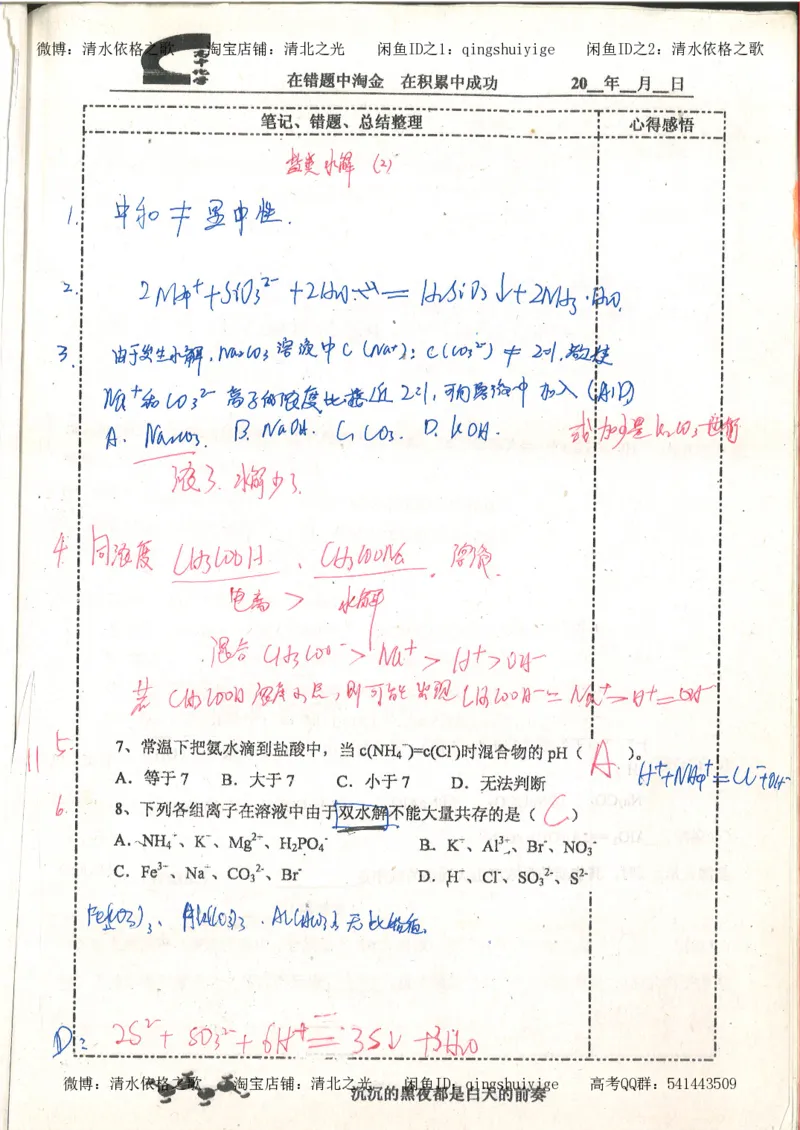 微博：清水依格之歌 淘宝店铺：清北之光 闲鱼ID之1：qingshuiyige 闲鱼ID之2：清水依格之歌
在错题中淘金 在积累中成功 20__年__月__日
笔记、错题、总结整理 心得感悟
盐类水解（2）
1. 中和 ≠ 显中性.
2. 2NH₄⁺+SiO₃²⁻+2H₂O = H₂SiO₃↓+2NH₃·H₂O.
3. 由于发生水解，Na₂CO₃溶液中C(Na⁺)：C(CO₃²⁻) ≠ 2:1.欲使
Na⁺和CO₃²⁻离子的浓度比接近2:1,可向溶液中加入(A、D)
A. Na₂CO₃. B. NaOH. C. CO₂. D. KOH.
或加少量K₂CO₃也可
浓了.水解少了.
4. 同浓度 CH₃COOH、CH₃COONa. 溶液.
电离 > 水解
混合 CH₃COO⁻>Na⁺>H⁺>OH⁻
若CH₃COOH浓度小点，则可能出现CH₃COO⁻=Na⁺>H⁺=OH⁻
5. 7、常温下把氨水滴到盐酸中，当c(NH₄⁺)=c(Cl⁻)时混合物的pH（ A ）。
H⁺+NH₄⁺=Cl⁻+OH⁻
11
A．等于7 B．大于7 C．小于7 D．无法判断
6. 8、下列各组离子在溶液中由于双水解不能大量共存的是（ C ）
A．NH₄⁺、K⁺、Mg²⁺、H₂PO₄⁻ B．K⁺、Al³⁺、Br⁻、NO₃⁻
C．Fe³⁺、Na⁺、CO₃²⁻、Br⁻ D．H⁺、Cl⁻、SO₃²⁻、S²⁻
无此物质.
D: 2S²⁻+SO₃²⁻+6H⁺=3S↓+3H₂O
微博：清水依格之歌 淘宝店铺：清北之光 闲鱼ID：qingshuiyige 高考QQ群：541443509
沉沉的黑夜都是白天的前奏